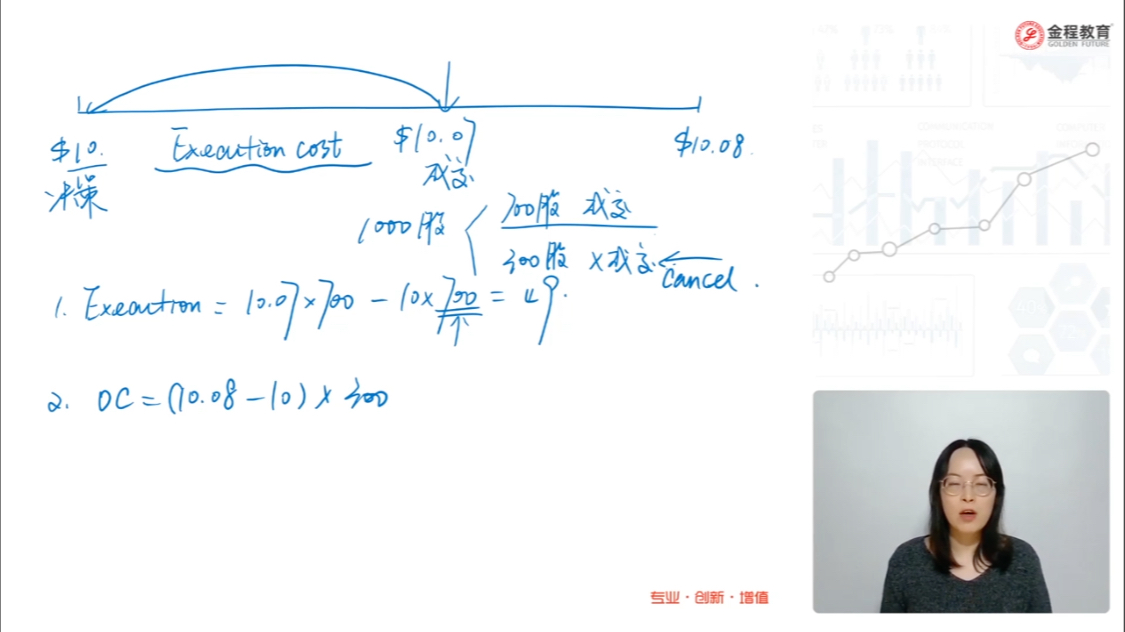 金程教育
GOLDEN FUTURE
$10.
决策
Execution cost
$10.07
成交
$10.08
1000股
700股 成交
300股 ×成交
Cancel.
1. Execution = 10.07×700 - 10×700 = 49.
个
2. OC = (10.08-10)×300
专业·创新·增值